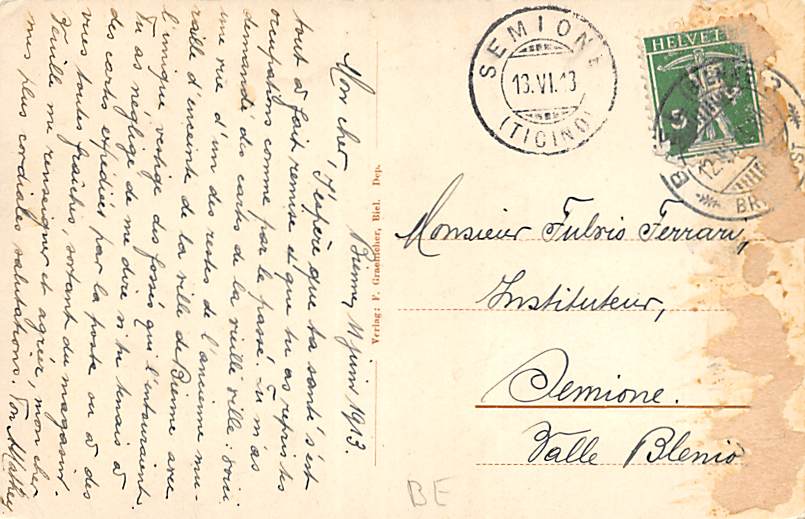 Bienne, 11 juin 1913.
Mon cher,
J'espère que ta santé s'est
tout à fait remise et que tu as repris tes
occupations comme par le passé. Tu m'as
demandé des cartes de la vieille ville: voici
une vue d'un des restes de l'ancienne mu-
raille d'enceinte de la ville de Bienne avec
l'unique vestige des fossés qui l'entouraient.
Tu as négligé de me dire si tu tenais à
des cartes expédiées par la poste ou à des
vues toutes fraîches, sortant du magasin.
Veuille me renseigner et agréer, mon cher
mes plus cordiales salutations. Ton AMathey
Verlag: F. Graehoher, Biel. Dep.
SEMIONE
13.VI.13
(TICINO)
HELVETIA
5
BIENNE
12
Monsieur Fulvio Ferrari,
Instituteur,
Semione.
Valle Blenio
BE